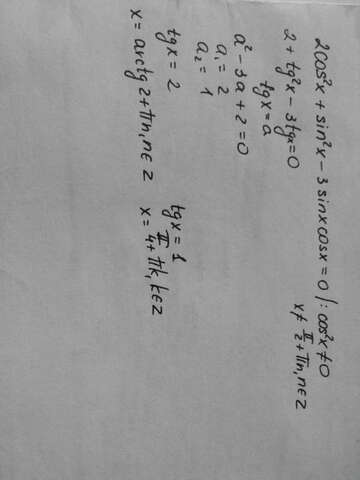 2cos²x + sin²x - 3sinxcosx = 0 |: cos²x ≠ 0
x ≠ π/2 + πn, n∈Z
2 + tg²x - 3tgx = 0
tgx = a
a² - 3a + 2 = 0
a₁ = 2
a₂ = 1
tgx = 2
x = arctg 2 + πn, n∈Z
tgx = 1
x = π/4 + πk, k∈Z